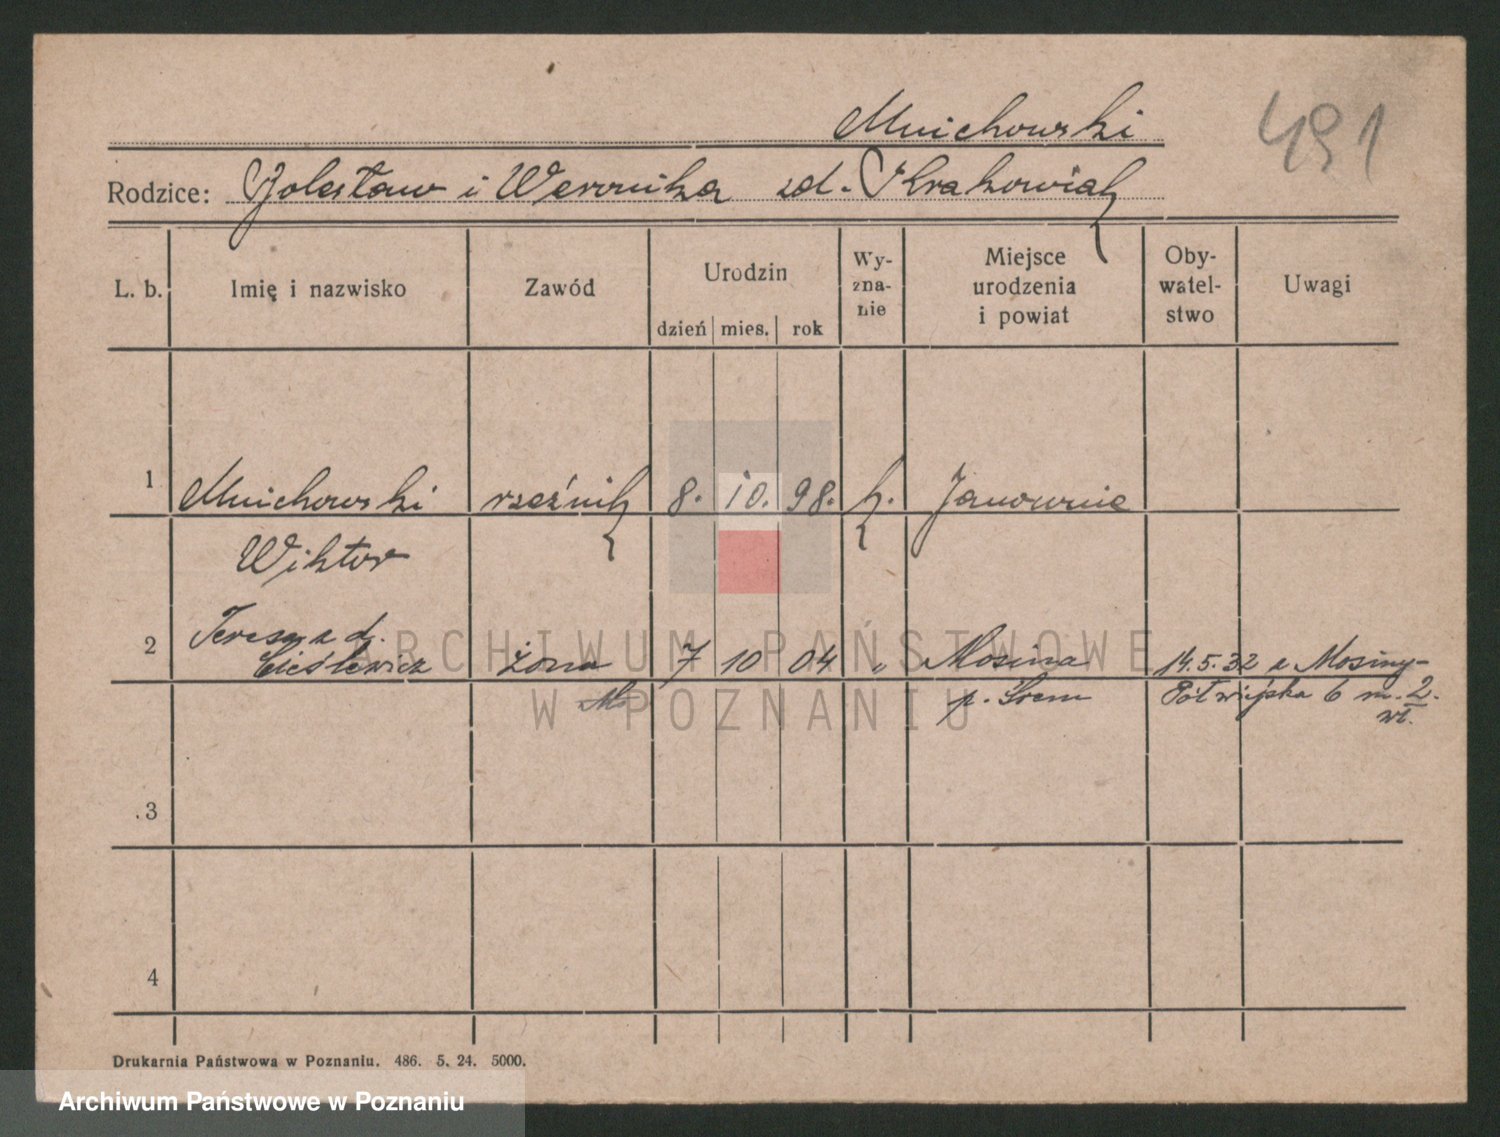 Mnichowski
491
Rodzice: Bolesław i Weronika zd. Krakowiak
L. b. Imię i nazwisko Zawód Urodzin dzień mies. rok Wy-zna-nie Miejsce urodzenia i powiat Oby-watel-stwo Uwagi
1 Mnichowski rzeźnik 8. 10. 98. k. Janowiec
Wiktor
2 Teresa z d.
Cieślewicz żona 7 10 04 „ Mosina 14.5.32 z Mosiny
p. Śrem Półwiejska 6 m. 2.
wł.
3
4
Drukarnia Państwowa w Poznaniu. 486. 5. 24. 5000.
ARCHIWUM PAŃSTWOWE
W POZNANIU
Archiwum Państwowe w Poznaniu